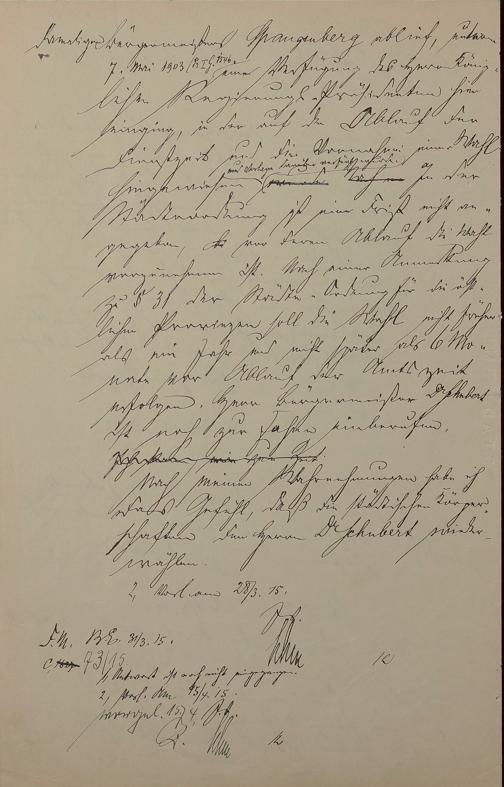 damaligen Bürgermeisters Spangenberg ablief, unterm
7. Mai 1903 eine Verfügung des Herrn König-
lichen Regierungs-Präsidenten hier
einging, in der auf den Ablauf der
Dienstzeit und die Vornahme einer Wahl
hingewiesen In der
Städteordnung ist eine Frist nicht an-
gegeben, vor deren Ablauf die Wahl
vorzunehmen ist. Nach einer Anmerkung
zu § 31 der Städte-Ordnung für die öst-
lichen Provinzen soll die Wahl nicht früher
als ein Jahr und nicht später als 6 Mo-
nate vor Ablauf der Amtszeit
erfolgen. Herr Bürgermeister Dr Schubert
ist noch zur Fahne einberufen.
Nach meinen Wahrnehmungen habe ich
das Gefühl, daß die städtischen Körper-
schaften den Herrn Dr Schubert wieder-
wählen.
2, Vorl. am 28/3. 15.
F.N. 31/3. 15.
73/15
1, Antwort ist noch nicht eingegangen.
2, Vorl. am 15/4. 15.
vorgel. 15/4.